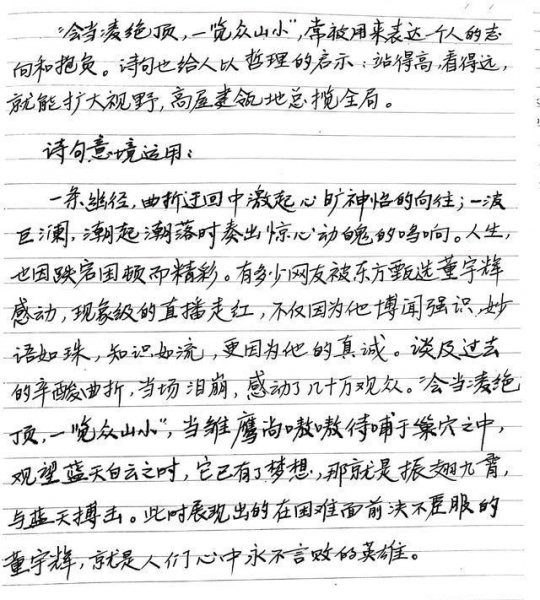 “会当凌绝顶，一览众山小”，常被用来表达一个人的志
向和抱负。诗句也给人以哲理的启示：站得高，看得远，
就能扩大视野，高屋建瓴地总揽全局。
诗句意境运用：
一条幽径，曲折迂回中激起心旷神怡的向往；一波
巨澜，潮起潮落时奏出惊心动魄的鸣响。人生，
也因跌宕困顿而精彩。有多少网友被东方甄选董宇辉
感动，现象级的直播走红，不仅因为他博闻强识，妙
语如珠，知识如流，更因为他的真诚。谈及过去
的辛酸曲折，当场泪崩，感动了几十万观众。“会当凌绝
顶，一览众山小”，当雏鹰尚嗷嗷待哺于巢穴之中，
观望蓝天白云之时，它已有了梦想，那就是振翅九霄，
与蓝天搏击。此时展现出的在困难面前决不屈服的
董宇辉，就是人们心中永不言败的英雄。